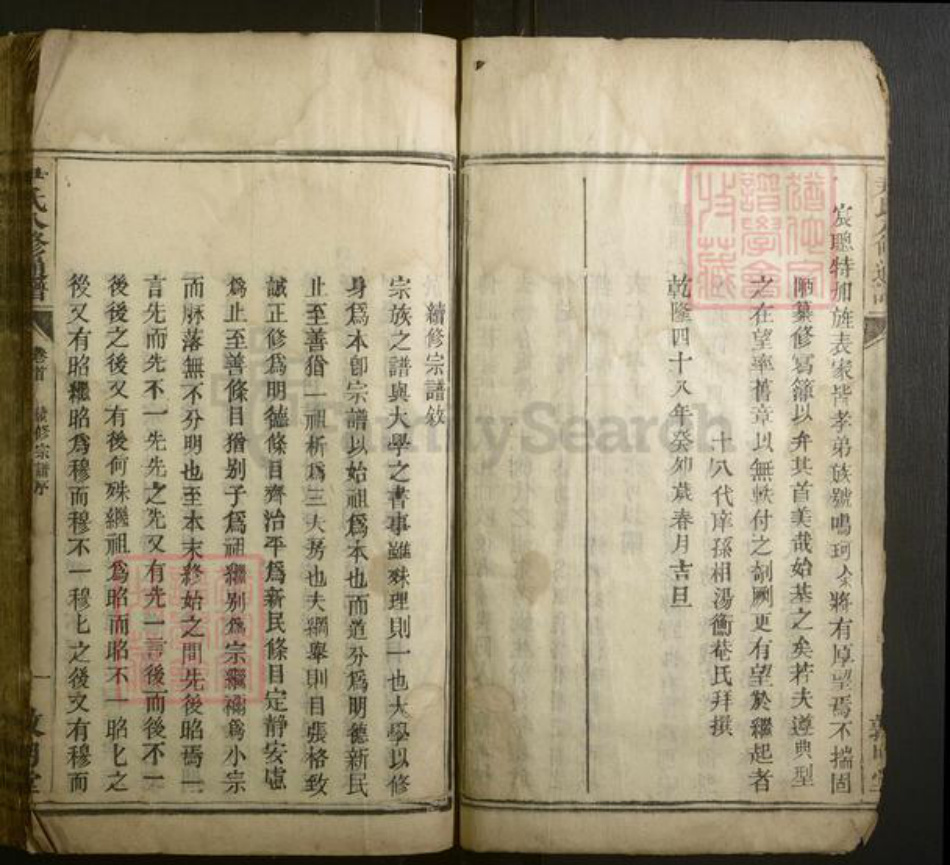 宸聰特加旌表家皆孝弟族號鳴珂余將有厚望焉不揣固
陋纂修寫篇以弁其首美哉始基之矣若夫遵典型
之在望率舊章以無軼付之剞劂更有望於繼起者
十八代庠孫相湯衡菴氏拜撰
乾隆四十八年癸卯歲春月吉旦
續修宗譜敘
宗族之譜與大學之書事雖殊理則一也大學以修
身爲本卽宗譜以始祖爲本也而道分爲明德新民
止至善猶一祖析爲三大房也夫綱舉則目張格致
誠正修爲明德條目齊治平爲新民條目定靜安慮
爲止至善條目猶别子爲祖繼别爲宗繼禰爲小宗
而脉落無不分明也至本末終始之間先後昭焉一
言先而先不一先先之先又有先一言後而後不一
後後之後又有後何殊繼祖爲昭而昭不一昭匕之
後又有昭繼昭爲穆而穆不一穆匕之後又有穆而
氏合修通譜
卷首
續修宗譜序
一
敦睦堂
FamilySearch